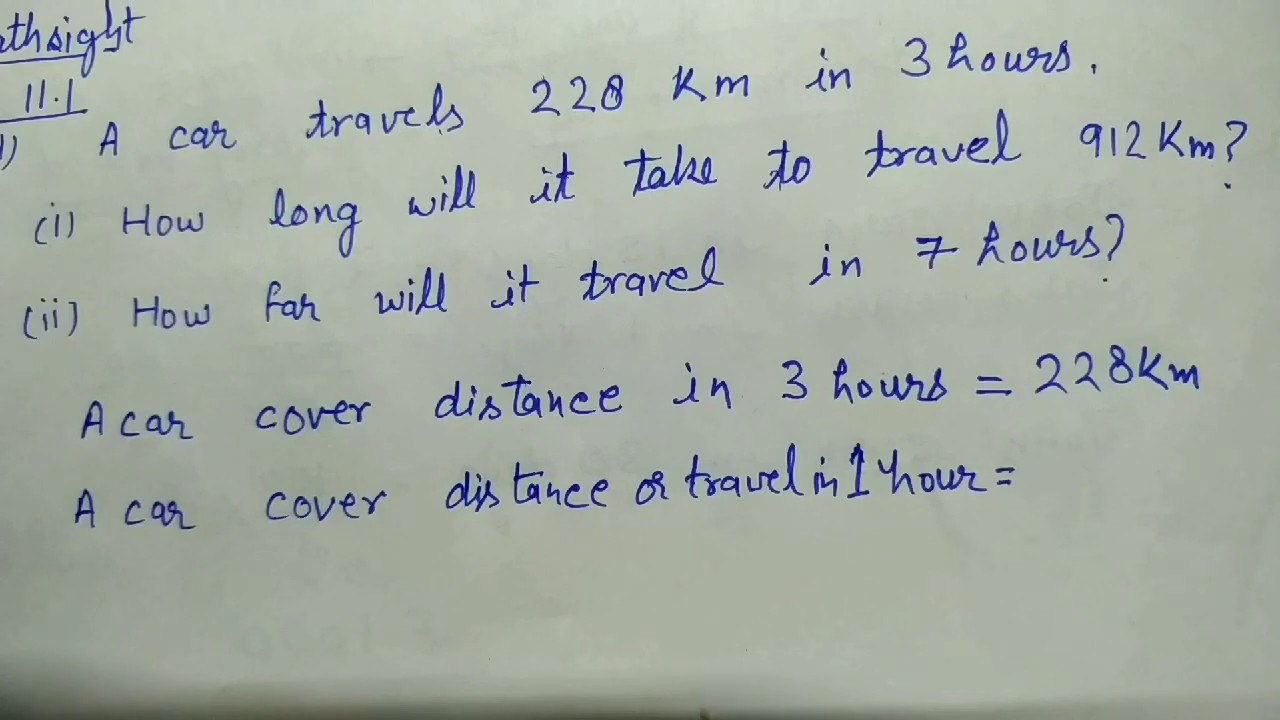 11.1
A car travels 228 Km in 3 hours.
(i) How long will it take to travel 912 Km?
(ii) How far will it travel in 7 hours?
A car cover distance in 3 hours = 228 Km
A car cover distance or travel in 1 hour =